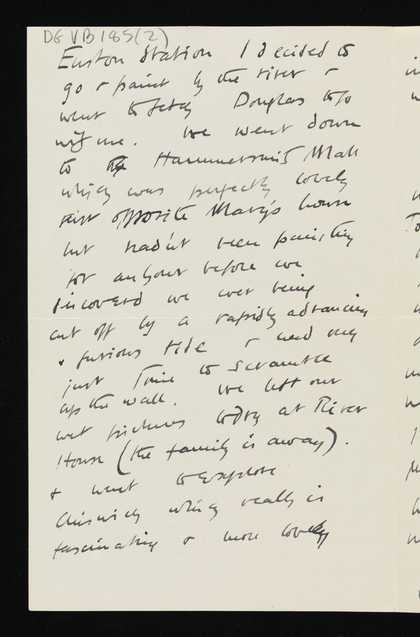 DGVB185(2)
Euston Station I decided to
go & paint by the river &
went to fetch Douglas to go
with me. We went down
to Hammersmith Mall
which was perfectly lovely
just opposite Mary's house
but hadn't been painting
for an hour before we
discovered we wer being
cut off by a rapidly advancing
& furious tide & had only
just time to scramble
up the wall. We left our
wet pictures to dry at River
House (the family is away).
& went to explore
Chiswick which really is
fascinating & more lovely